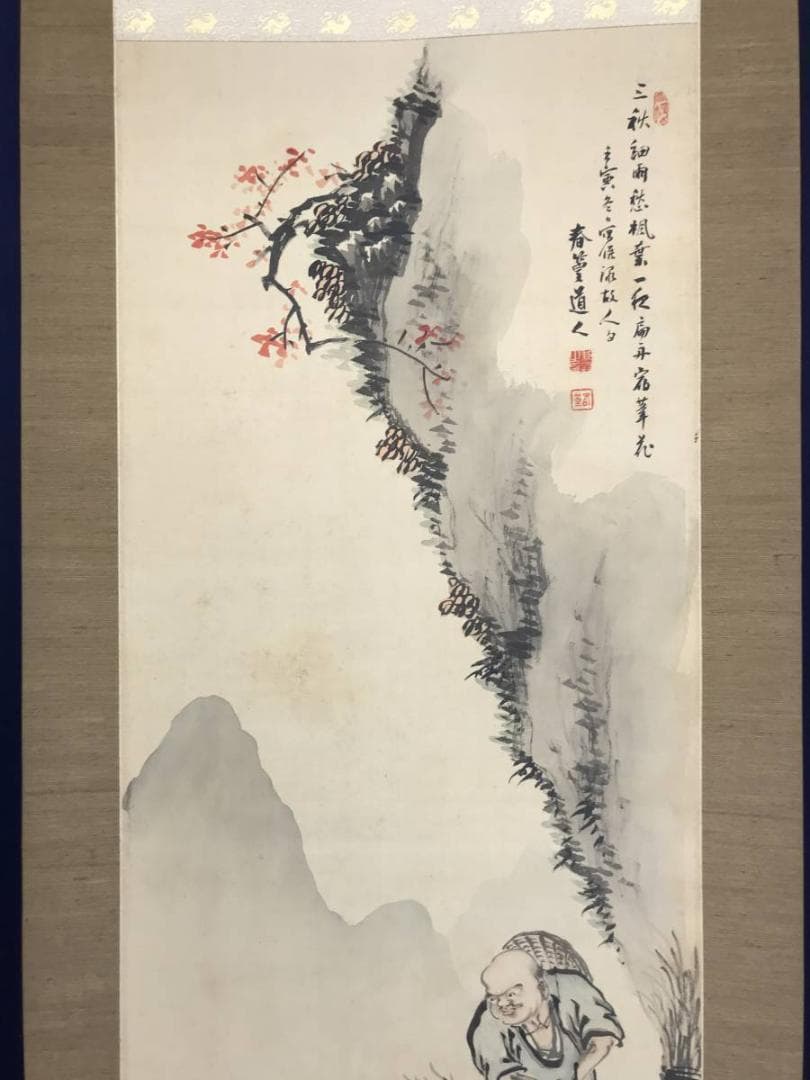 三秋細雨愁楓葉一夜扁舟宿葦花
壬寅冬寫併録故人句
春篁道人